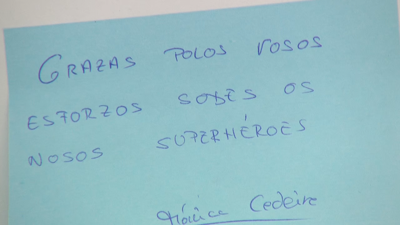 GRAZAS POLOS VOSOS
ESFORZOS SODES OS
NOSOS SUPERHÉROES
Mónica Cedeira